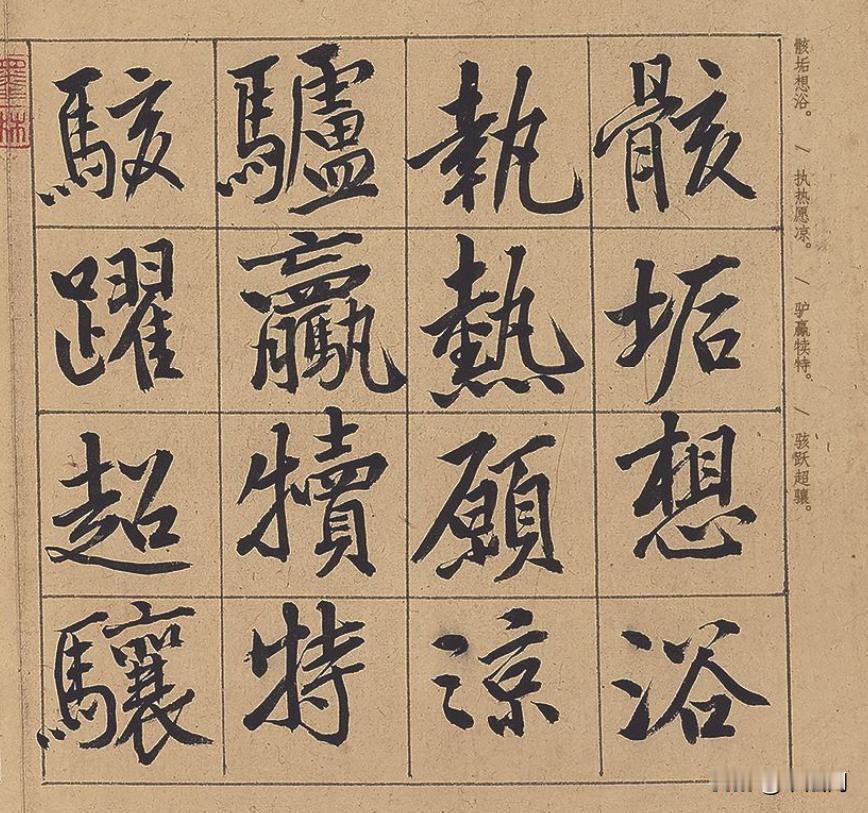 骸垢想浴。 / 执热愿凉。 / 驴赢犊特。 / 骇跃超骧。
骸垢想浴
執熱願涼
驢驘犢特
駭躍超驤